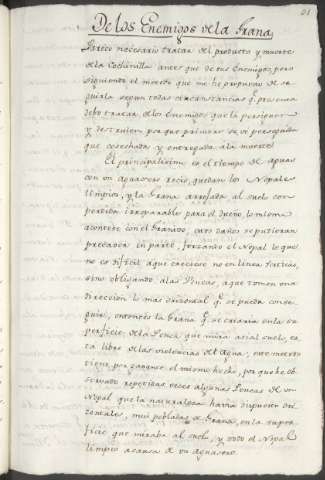 91
De los Enemigos de la Grana
Parece necesario tratar del producto y muerte
de la Cochinilla antes que de sus Enemigos, pero
siguiendo el metodo que me he propuesto de se-
guirla segun todas circunstancias q.e presenta
debo tratar de los Enemigos que la persiguen
y destruien, por que primero se vé perseguida
que cosechada y entregada a la muerte.
El principalisimo es el tiempo de aguas
con un aguacero recio, quedan los Nopales
limpios, y la Grana arrojada al suelo con
perdida irreparable para el dueño, lo mismo
acontece con el Granizo, cuios daños se pudieran
precaver en parte, forzando el Nopal lo que
no es dificil aque creciese no en linea
sino obligando a las Pencas, aque tomen una
Direccion lo mas orizontal q.e se pueda conse-
guir, entonces la Grana q.e se criaria en la su-
perficie de la Penca que mira asia el suelo, es-
ta libre de las violencias del Agua, este merito
tiene por el mismo hecho, por que he ob-
servado repetidas veces algunas Pencas de un
Nopal que la naturaleza havia dispuesto ori-
zontales, mui pobladas de Grana, en la super-
ficie que miraba al suelo, y todo el Nopal
limpio acausa de un aguasero.